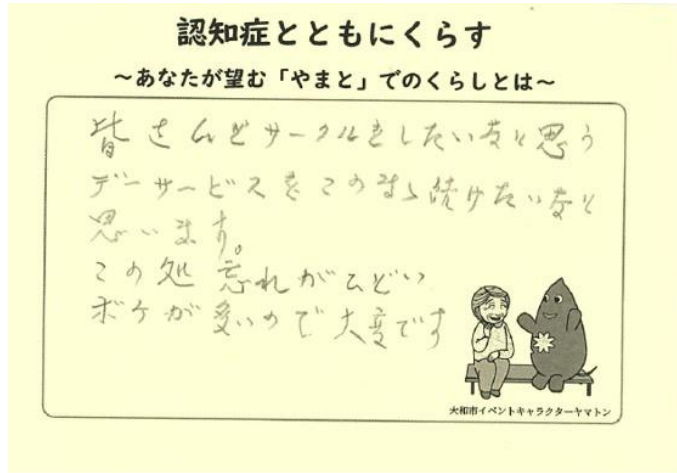 認知症とともにくらす
~あなたが望む「やまと」でのくらしとは~
皆さんとサークルをしたいなと思う
デーサービスをこのまゝ続けたいなと
思います。
この処忘れがひどい
ボケが多いので大変です
大和市イベントキャラクターヤマトン